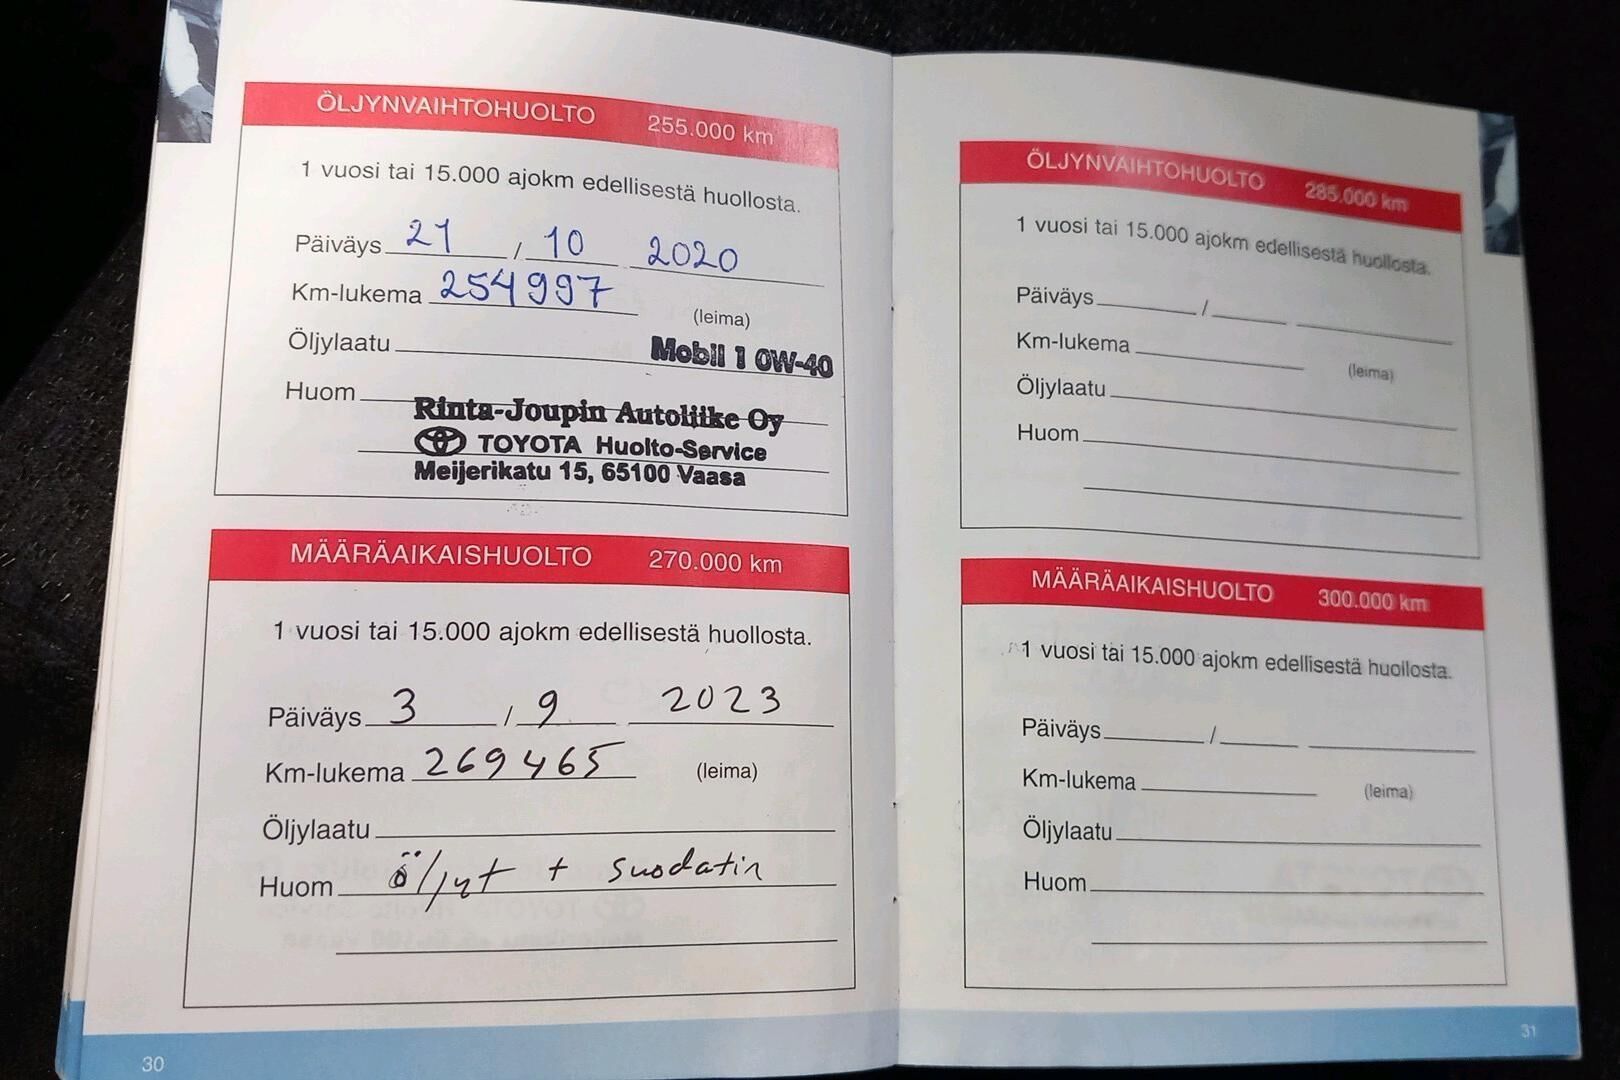 ÖLJYNVAIHTOHUOLTO 255.000 km
1 vuosi tai 15.000 ajokm edellisestä huollosta.
Päiväys 21 / 10 2020
Km-lukema 254997
(leima)
Öljylaatu Mobil 1 0W-40
Huom
Rinta-Joupin Autoliike Oy
TOYOTA Huolto-Service
Meijerikatu 15, 65100 Vaasa
MÄÄRÄAIKAISHUOLTO 270.000 km
1 vuosi tai 15.000 ajokm edellisestä huollosta.
Päiväys 3 / 9 2023
Km-lukema 269465 (leima)
Öljylaatu
Huom öljyt + suodatin
30
ÖLJYNVAIHTOHUOLTO 285.000 km
1 vuosi tai 15.000 ajokm edellisestä huollosta.
Päiväys /
Km-lukema
(leima)
Öljylaatu
Huom
MÄÄRÄAIKAISHUOLTO 300.000 km
1 vuosi tai 15.000 ajokm edellisestä huollosta.
Päiväys /
Km-lukema (leima)
Öljylaatu
Huom
31